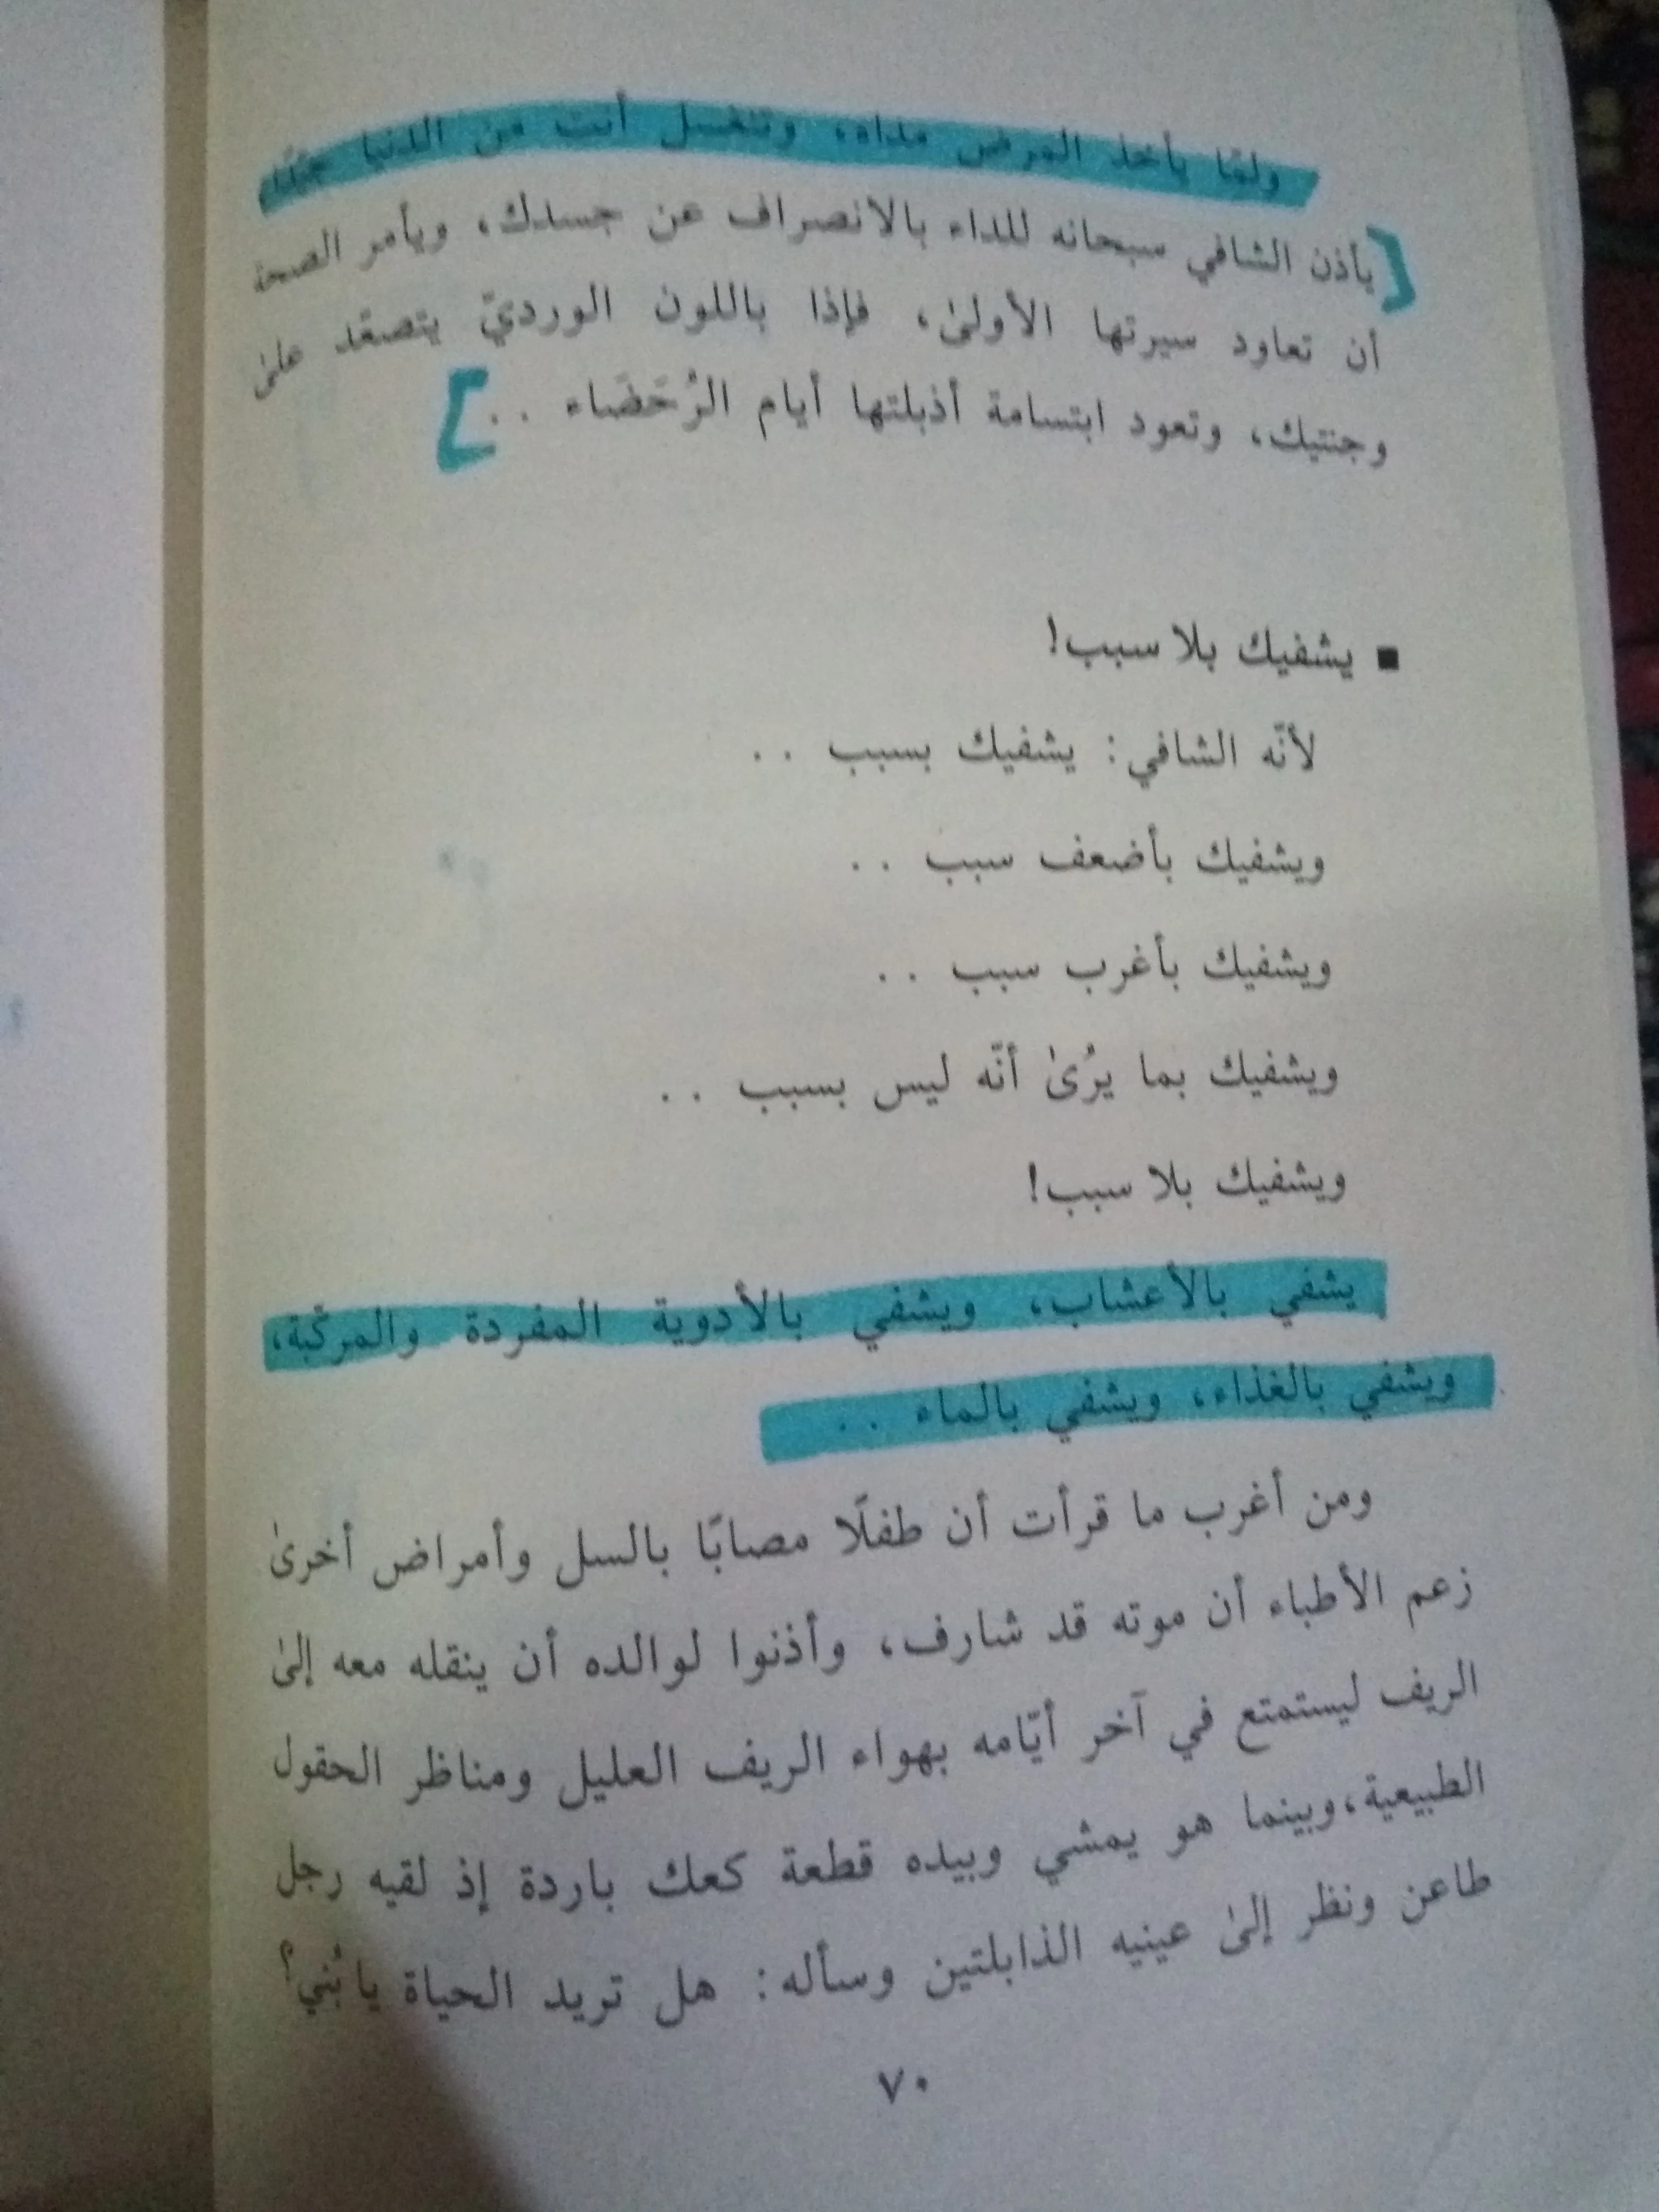 ولمّا يأخذ المرض مداه، وتغتسل أنت من الدنيا جيّدًا
يأذن الشافي سبحانه للداء بالانصراف عن جسدك، ويأمر الصحة
أن تعاود سيرتها الأولىٰ، فإذا باللون الورديّ يتصعّد علىٰ
وجنتيك، وتعود ابتسامة أذبلتها أيام الرُحَضَاء . .
▪ يشفيك بلا سبب!
لأنّه الشافي: يشفيك بسبب . .
ويشفيك بأضعف سبب . .
ويشفيك بأغرب سبب . .
ويشفيك بما يرُىٰ أنّه ليس بسبب . .
ويشفيك بلا سبب!
يشفي بالأعشاب، ويشفي بالأدوية المفردة والمركّبة،
ويشفي بالغذاء، ويشفي بالماء . .
ومن أغرب ما قرأت أن طفلًا مصابًا بالسل وأمراض أخرىٰ
زعم الأطباء أن موته قد شارف، وأذنوا لوالده أن ينقله معه إلىٰ
الريف ليستمتع في آخر أيّامه بهواء الريف العليل ومناظر الحقول
الطبيعية، وبينما هو يمشي وبيده قطعة كعك باردة إذ لقيه رجل
طاعن ونظر إلىٰ عينيه الذابلتين وسأله: هل تريد الحياة يا بُني؟
٧٠